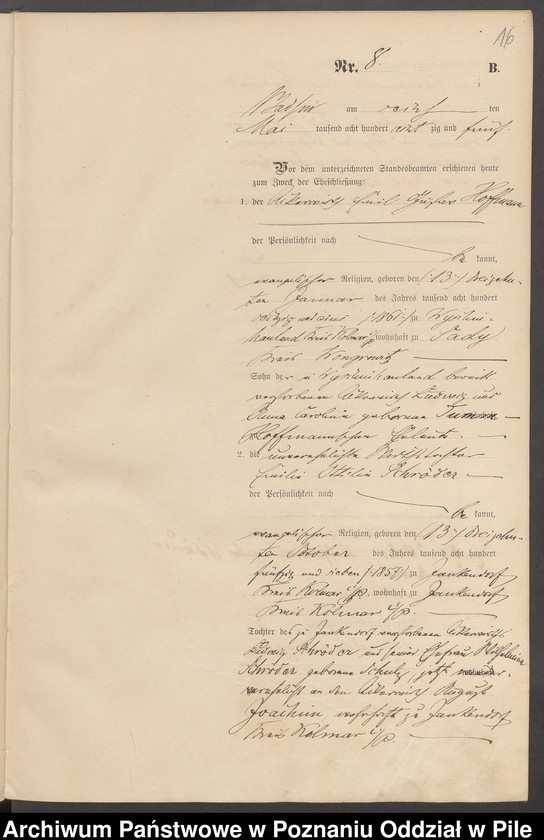 16
Nr. 8. B.
am ten
Mai tausend acht hundert acht zig und fünf.
Vor dem unterzeichneten Standesbeamten erschienen heute
zum Zweck der Eheschließung:
1. der Ackerwirth Emil Gustav Hoffmann
der Persönlichkeit nach
be kannt,
evangelischer Religion, geboren den (:13:) dreizehn-
ten Januar des Jahres tausend acht hundert
sechzig und eins (:1861:) zu
hauland Kreis Kolmar i/p, wohnhaft zu
Kreis Wongrowitz
Sohn der in hauland bereits
verstorbenen Ackerwirth Ludwig und
Anna Caroline geborenen
Hoffmannschen Eheleute.
2. die unverehelichte Wirthstochter
Emilie Ottilie Schröder
der Persönlichkeit nach
be kannt,
evangelischer Religion, geboren den (:13:) dreizehn-
ten October des Jahres tausend acht hundert
fünfzig und sieben (:1857:) zu Jankendorf
Kreis Kolmar i/p., wohnhaft zu Jankendorf
Kreis Kolmar i/p.
Tochter des zu Jankendorf verstorbenen Ackerwirth
Ludwig Schröder und seiner Ehefrau Wilhelmine
Schröder geborene Schulz, jetzt wieder ver-
verehelicht an den Ackerwirth August
Joachim, wohnhaft zu Jankendorf
Kreis Kolmar i/p.
Archiwum Państwowe w Poznaniu Oddział w Pile